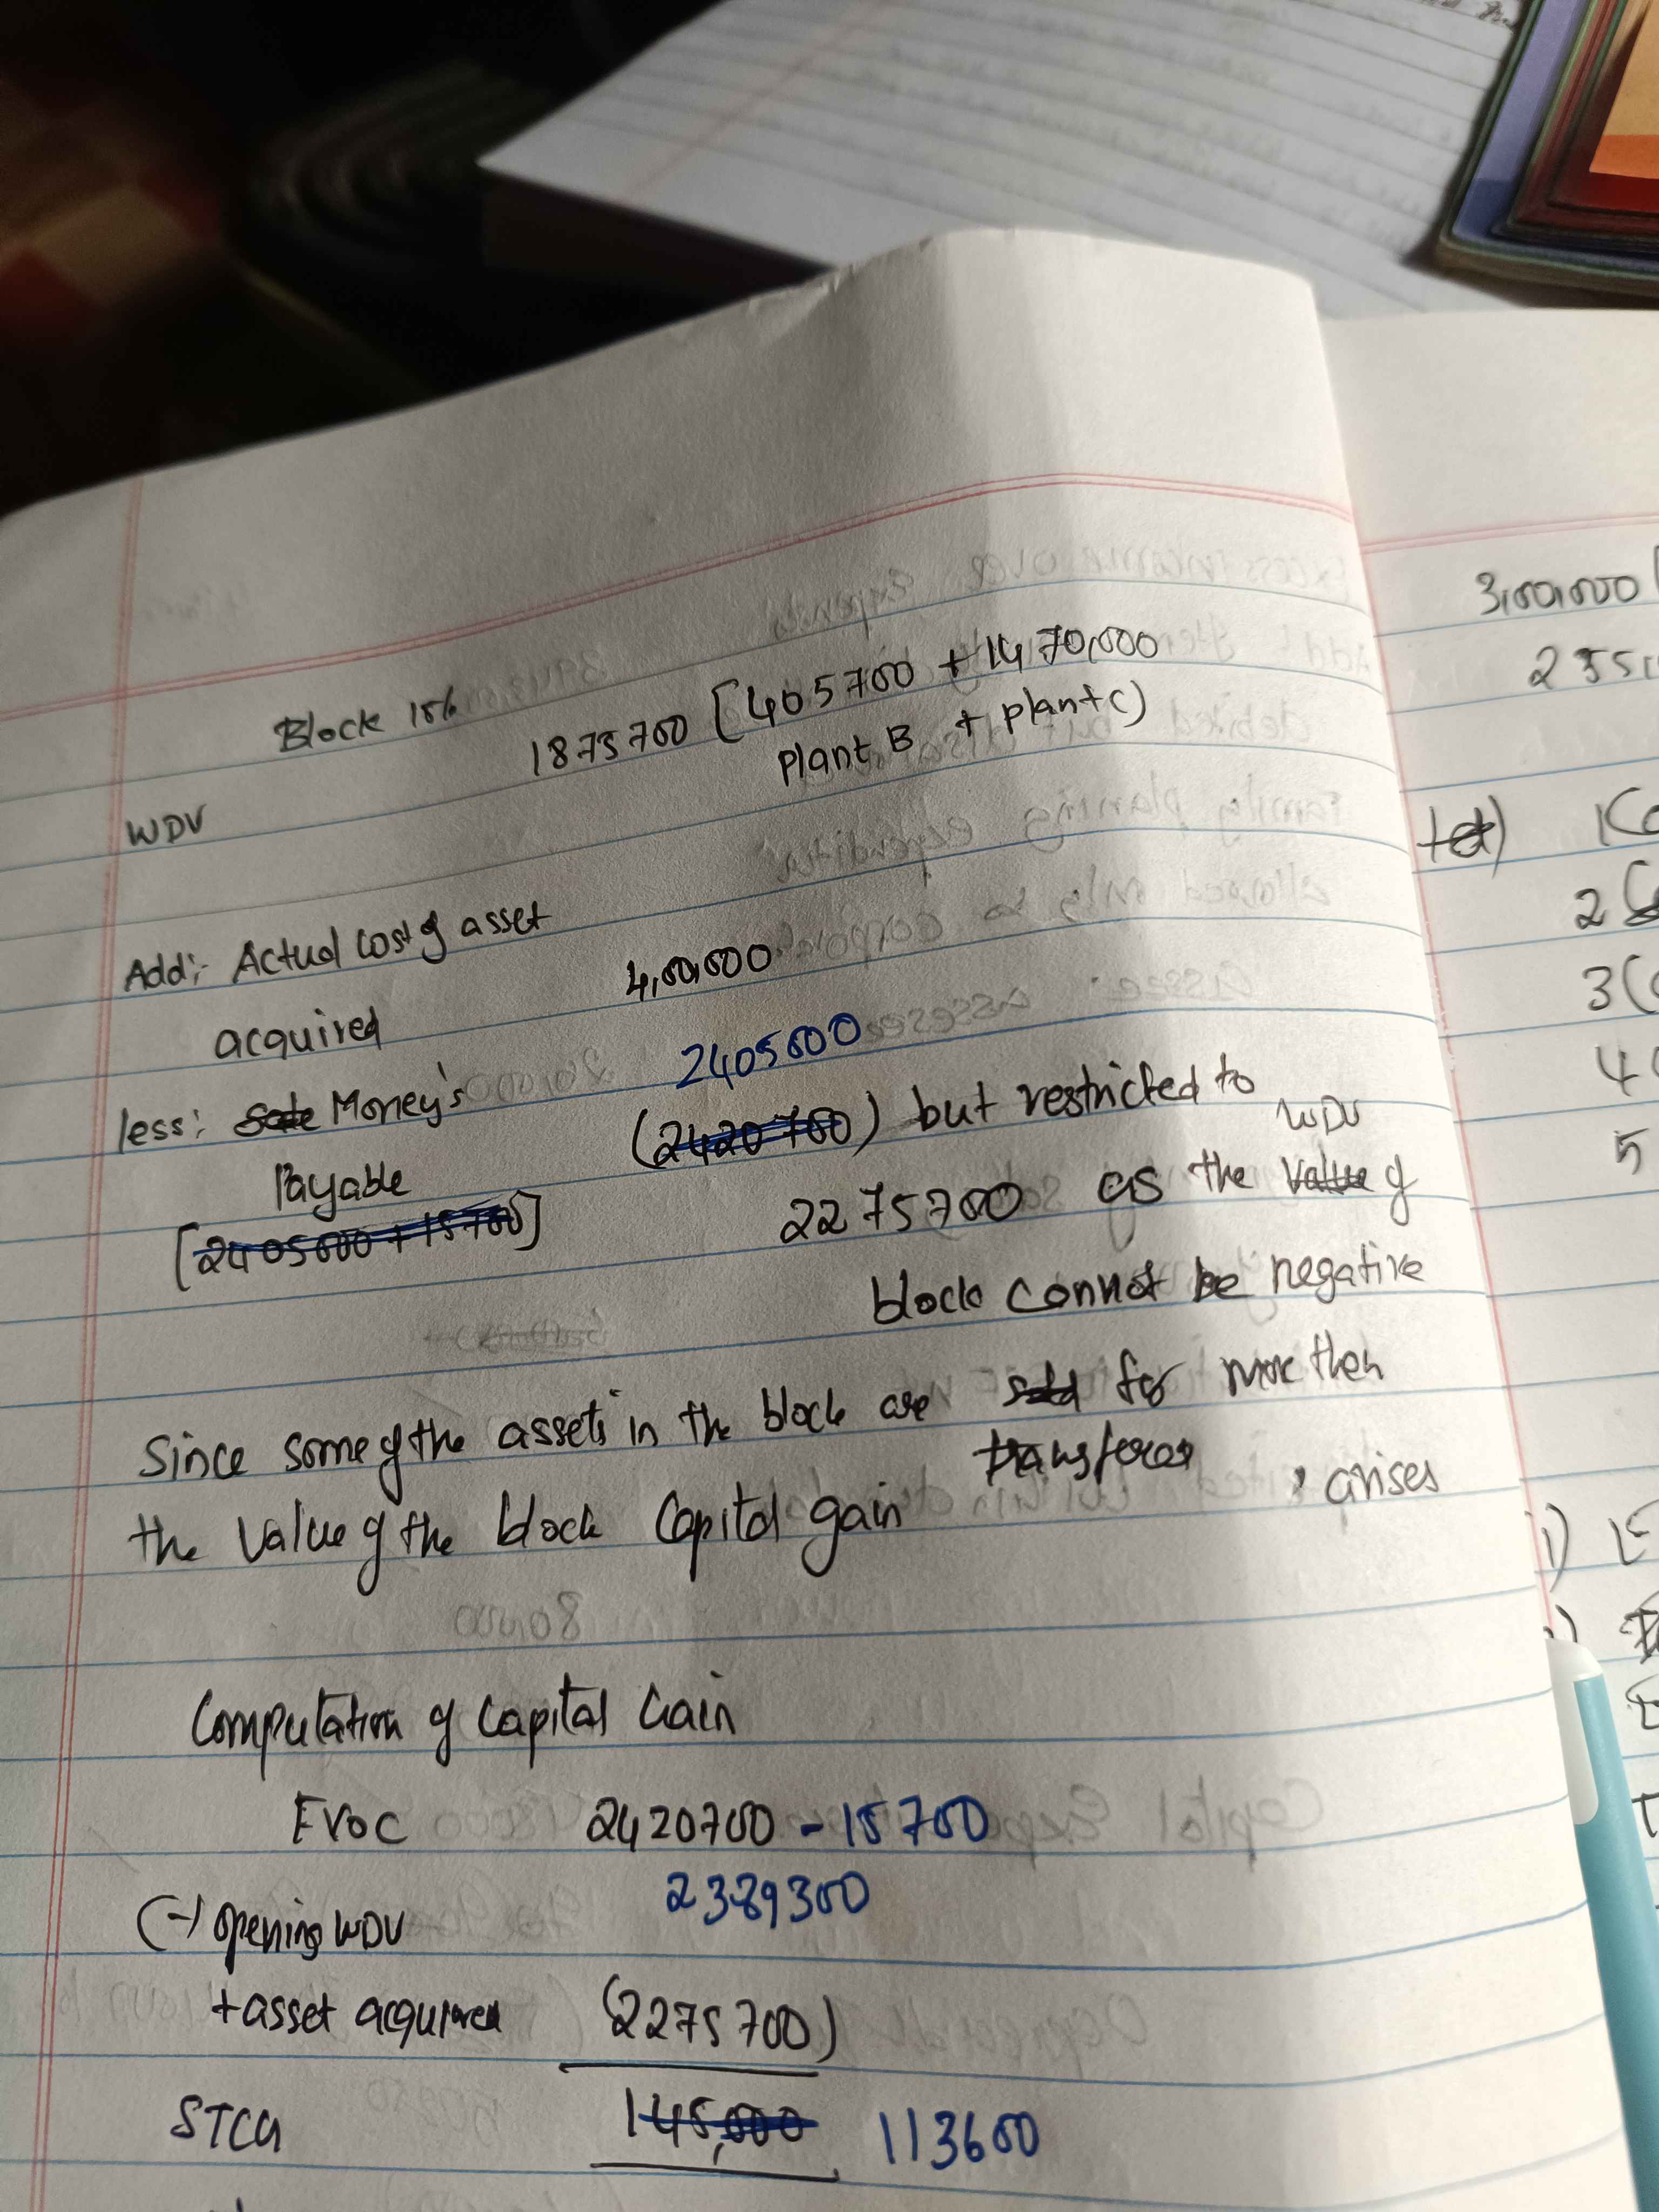 Block 15%
WDV 1875700 [405700 + 1470,000
plant B + plant C)
Add:- Actual cost of asset
acquired 4,00,000
2405000
less: Sale Money's (2420700) but restricted to
Payable 2275700 as the value of WDV
[2405000 + 15700] block cannot be negative
Since some of the assets in the block are sold for more then
transferer
the value of the block Capital gain , arises
Computation of Capital Gain
FVOC 2420700 - 15700
2389300
(-) opening WDV
+ asset acquired (2275700)
STCG 145,000 113600
3,00,000
2
3(
4(
5